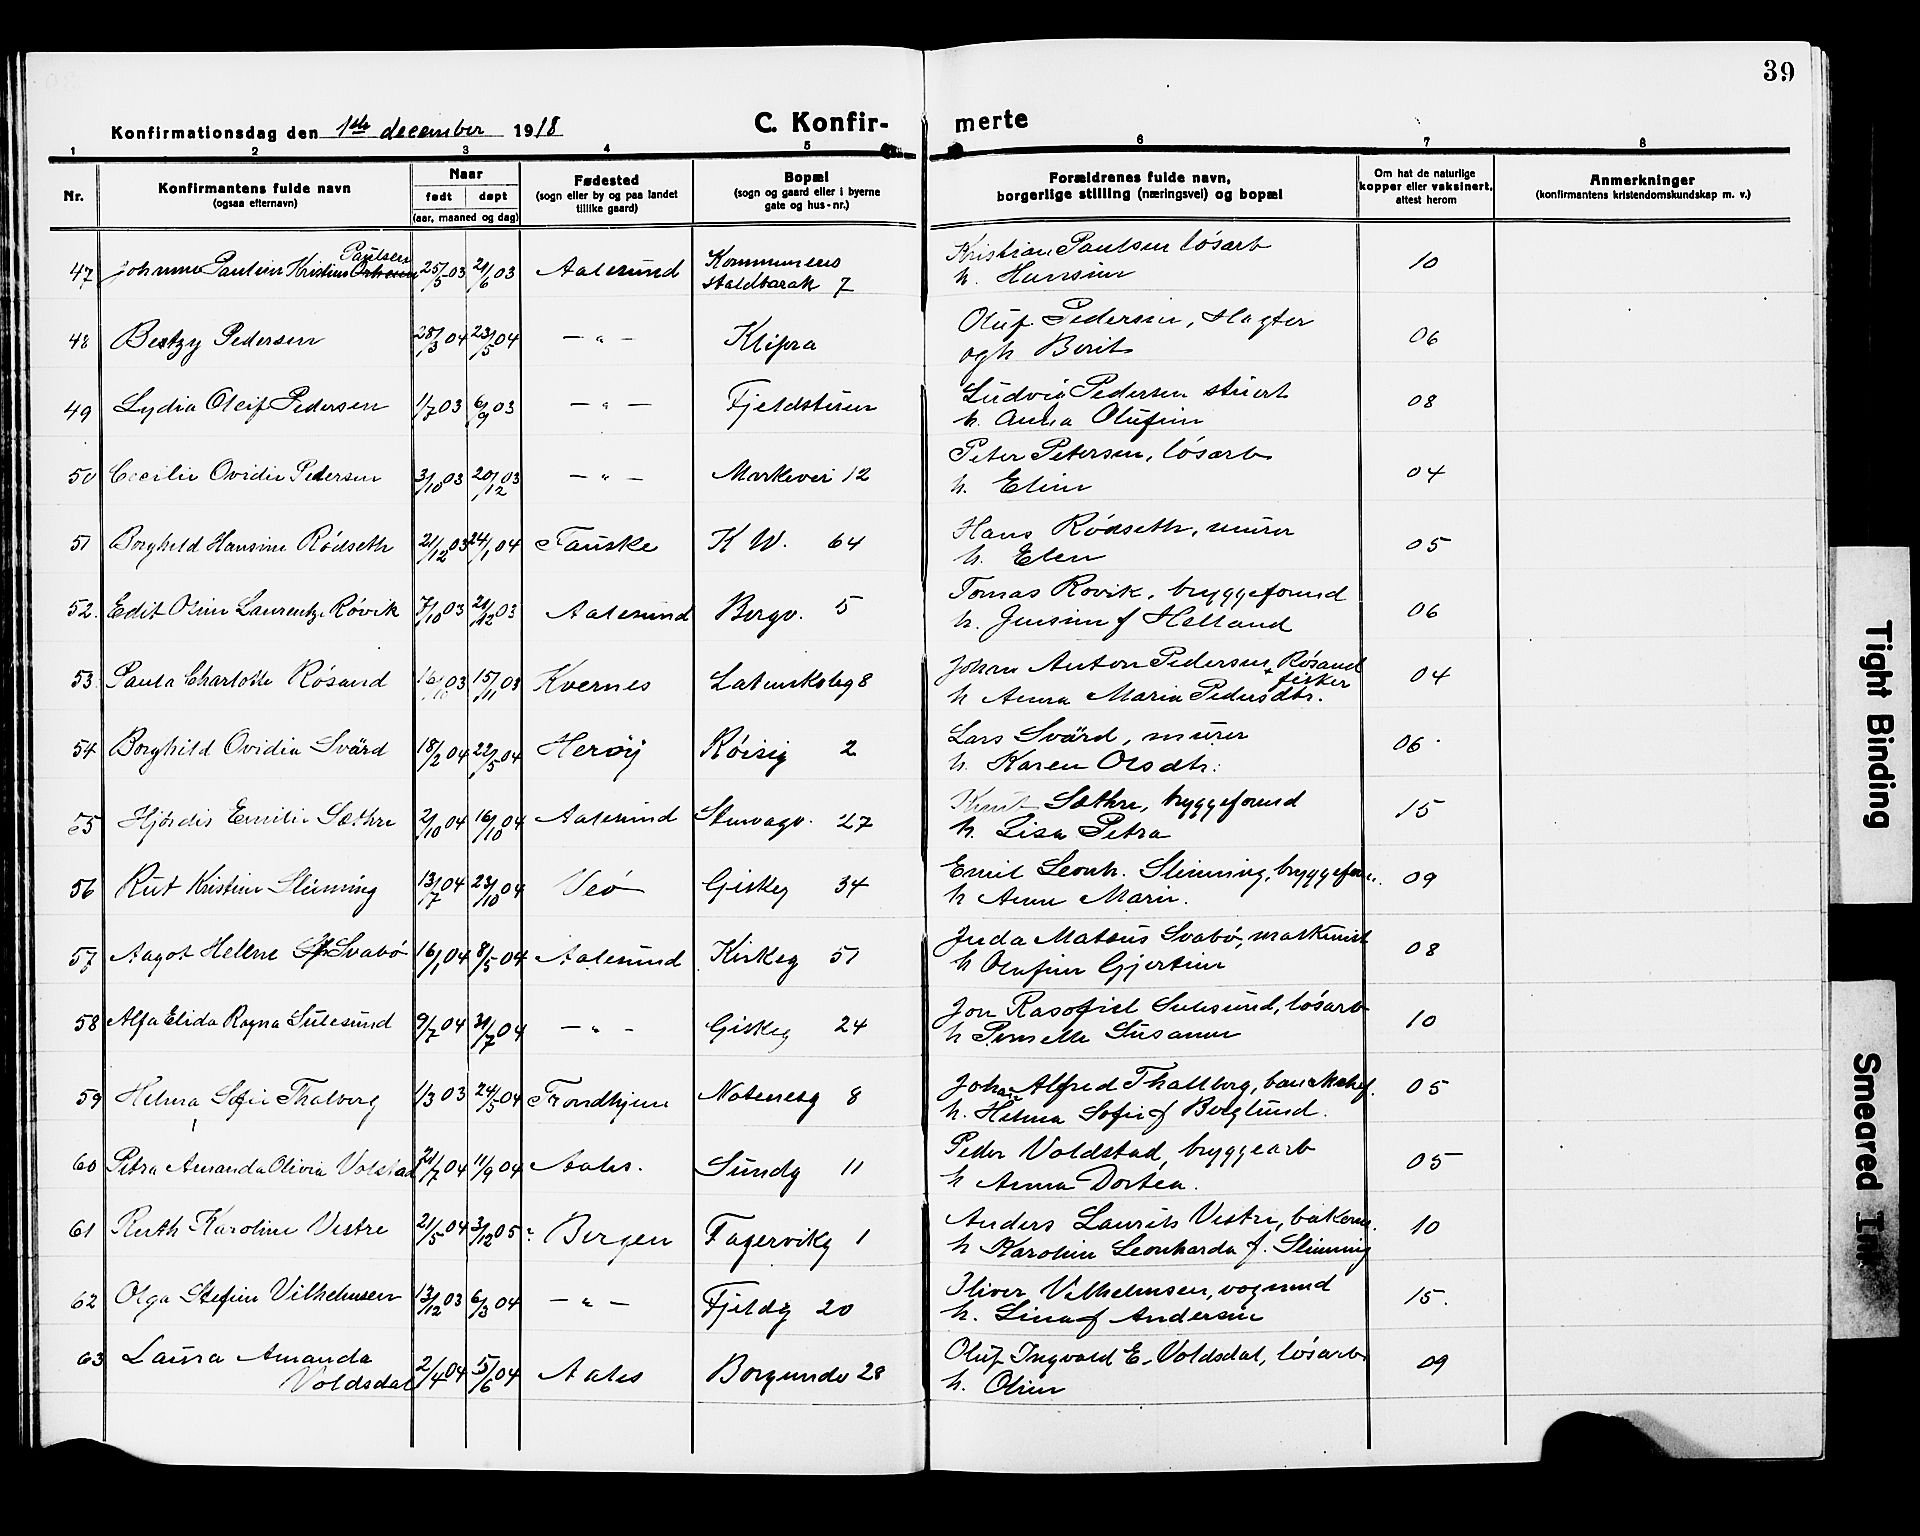 39
Konfirmationsdag den 1ste december 1918
C. Konfir- merte
1 2 3 4 5 6 7 8
Nr.
Konfirmantens fulde navn
(ogsaa efternavn)
Naar
født døpt
(aar, maaned og dag)
Fødested
(sogn eller by og paa landet
tillike gaard)
Bopæl
(sogn og gaard eller i byerne
gate og hus-nr.)
Forældrenes fulde navn,
borgerlige stilling (næringsvei) og bopæl
Om hat de naturlige
kopper eller vaksinert,
attest herom
Anmerkninger
(konfirmantens kristendomskundskap m. v.)
Paulsen Kommunens Kristian Paulsen løsarb
47 Johanne Pauline Kristine 25/5 03 21/6 03 Aalesund staldbarak 7 h. Hansine 10
48 Bertzy Pedersen 28/3 04 23/5 04 — " — Klipra Oluf Pedersen, slagter 06
ogh Berit
49 Lydia Oleif Pedersen 1/7 03 6/9 03 — " — Fjeldstuen Ludvig Pedersen stuert 08
h. Anna Olufine
50 Cecilie Ovidie Pedersen 3/10 03 20/12 03 — " — Markevei 12 Peter Petersen, løsarb 04
h. Eline
51 Borghild Hansine Rødseth 21/12 03 24/1 04 Fauske K W. 64 Hans Rødseth, murer 05
h. Elen
52. Edit Oline Laurentze Røvik 7/10 03 21/12 03 Aalesund Borgv. 5 Tomas Rovik, bryggeformd 06
h. Jensine f Helland
53 Paula Charlotte Røsand 03 15/11 03 Kvernes Latinskoleg 8 Johan Anton Pedersen Røsand fisker 04
h Anna Maria Pedersdtr.
54 Borghild Ovidia Svärd 18/2 04 22/5 04 Herøy Røisig 2 Lars Svärd, murer 06
h. Karen Olsdtr.
55 Hjördis Emilie Sæthre 2/10 04 16/10 04 Aalesund Storvagv. 27 Knut Sæthre, bryggeformd 15
h. Lisa Petra
56 Rut Kristine Slinning 13/7 04 23/10 04 Veø Giskeg 34 Emil Leonh. Slinning, bryggeform. 09
h Anne Marie.
57 Aagot Helene Svabø 16/1 04 8/5 04 Aalesund Kirkeg 51 Juda Mateus Svabø, maskinist 08
h Olufine Gjertine
58 Alfa Elida Ragna Sulesund 9/7 04 31/7 04 — " — Giskeg 24 Jon Rasofiel Sulesund, løsarb 10
h Pernelle Susanne
59 Helma Sofie Thalberg 1/3 03 24/5 04 Trondhjem Notenesg 8 Johan Alfred Thallberg, 05
h. Helma Sofie f Berglund.
60 Petra Amanda Olivia Volstad 21/7 04 11/9 04 Aales. Sundg 11 Peder Voldstad, bryggearb 05
h Anna Dortea.
61 Ruth Karoline Vestre 21/5 04 3/12 05 Bergen Fagervikg 1 Anders Laurits Vestre, bakerm. 10
h Karoline Leonharda f. Slinning
62 Olga Stefine Vilhelmsen 13/12 03 6/3 04 — " — Fjeldg 20 Iliver Vilhelmsen, vognmd 15.
h. Lina f Andersen
63 Laura Amanda Oluf Ingvald E. Voldsdal, løsarb
Voldsdal 2/4 04 5/6 04 Aales Borgundv 28 h. Oline 09
Tight Binding
Smeared Ink